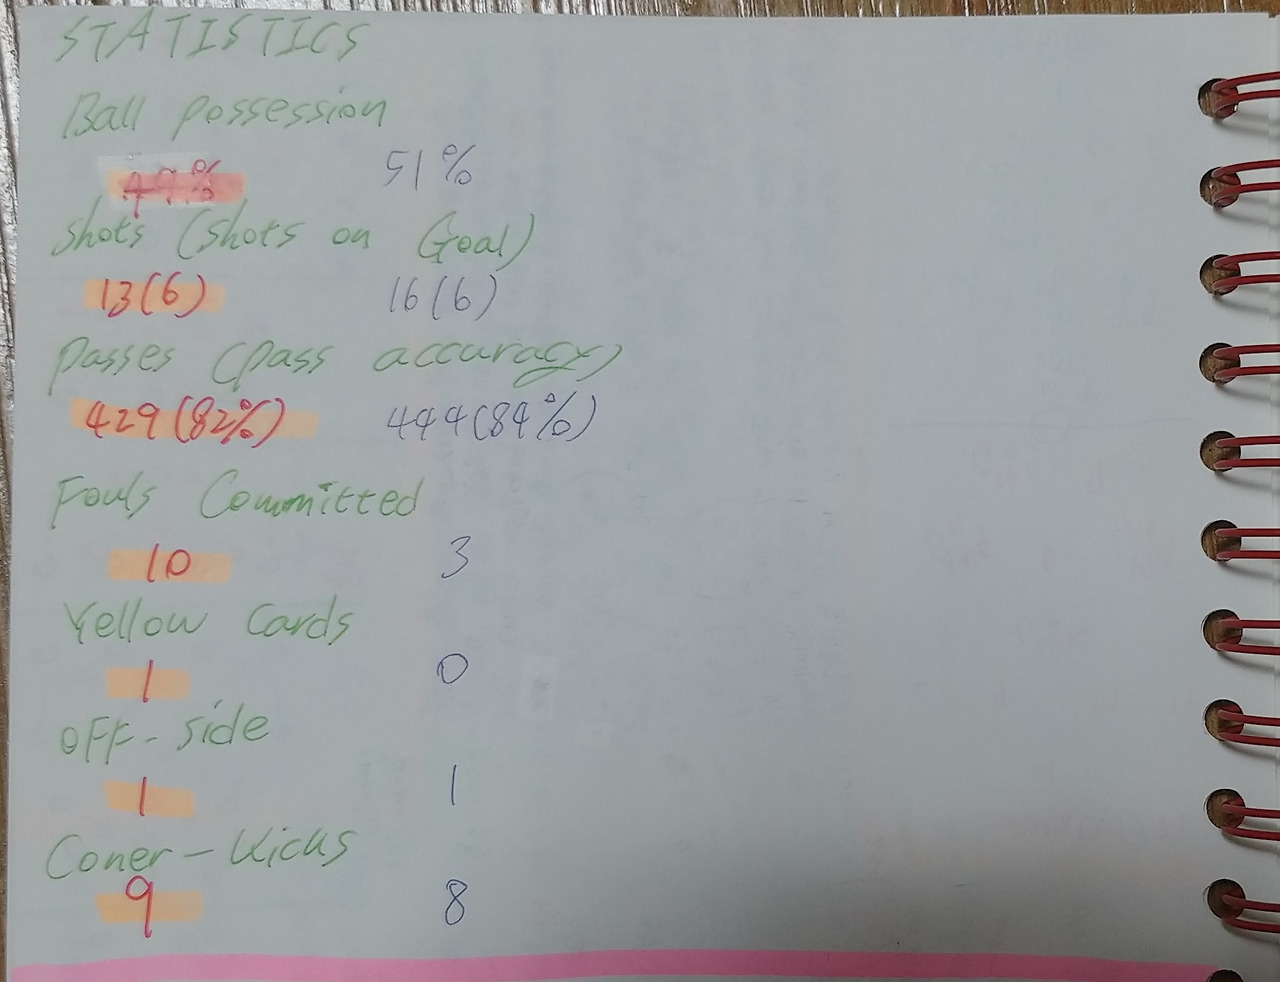 STATISTICS
Ball possession
49% 51%
shots (shots on Goal)
13(6) 16(6)
passes (pass accuracy)
429(82%) 444(84%)
Fouls Committed
10 3
Yellow Cards
1 0
OFF-side
1 1
Coner-Kicks
9 8